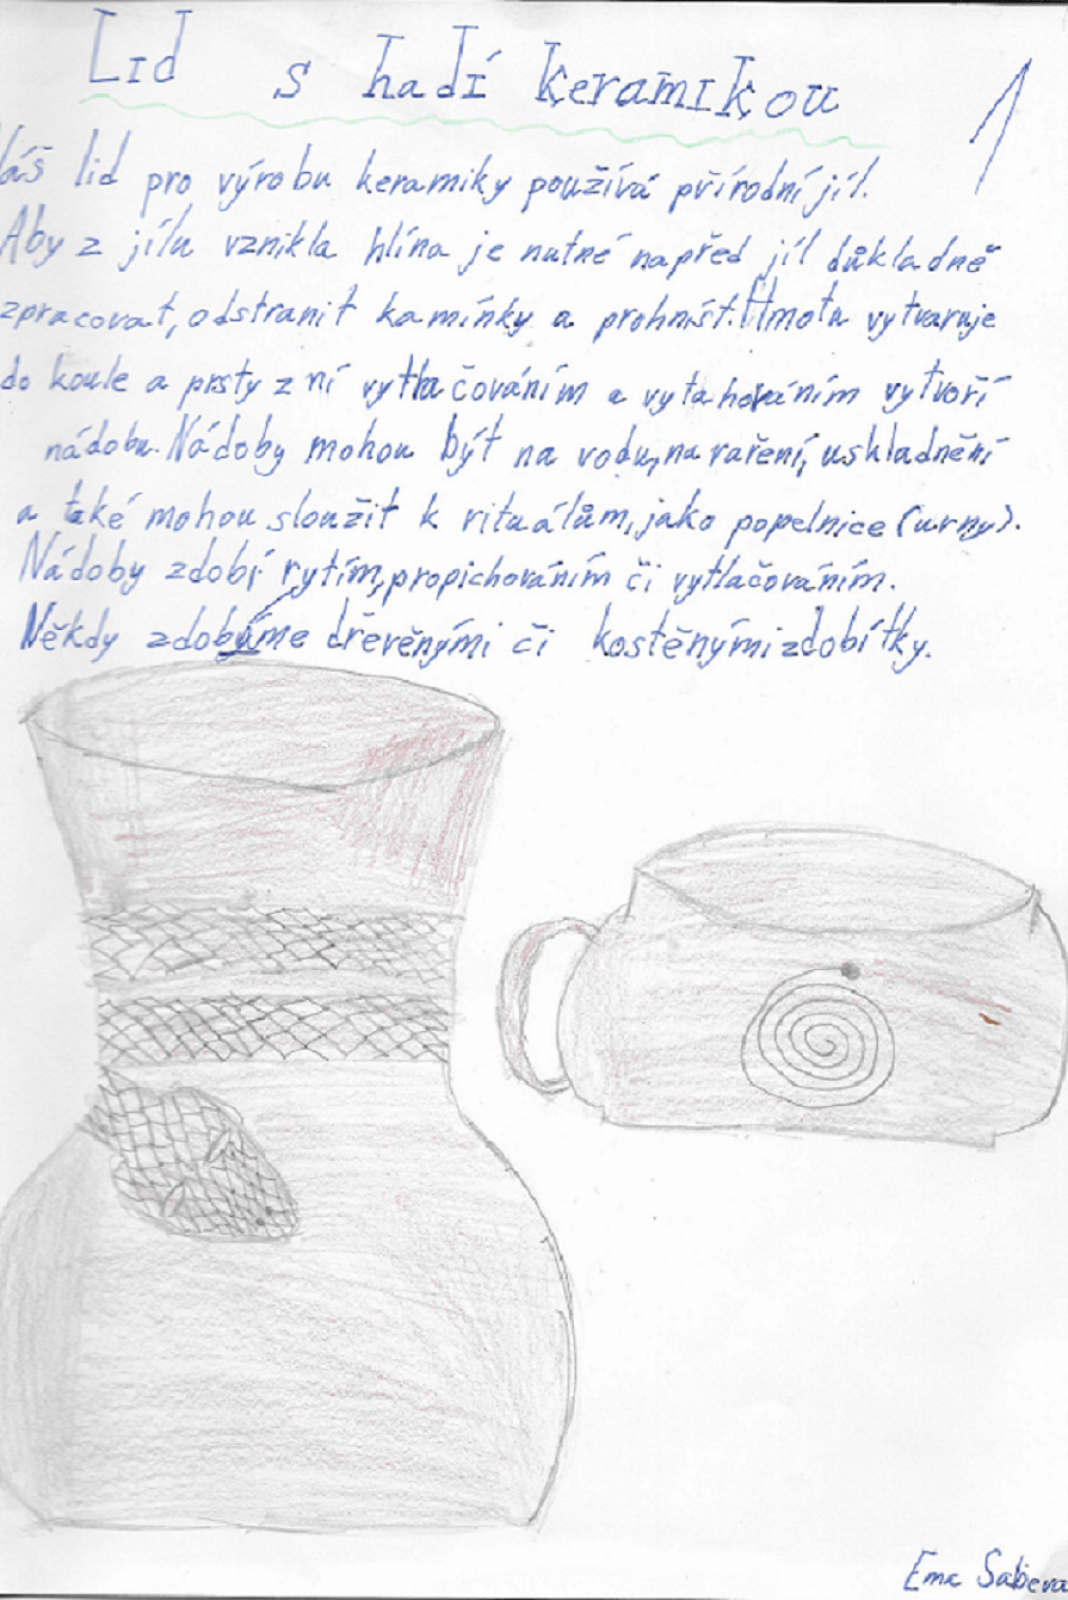 Lid s hadí keramikou 1
Náš lid pro výrobu keramiky používá přírodní jíl.
Aby z jílu vznikla hlína je nutné napřed jíl důkladně
zpracovat, odstranit kamínky a prohníst. Hmotu vytvaruje
do koule a prsty z ní vytlačováním a vytahováním vytvoří
nádobu. Nádoby mohou být na vodu, na vaření, uskladnění
a také mohou sloužit k rituálům, jako popelnice (urny).
Nádoby zdobí rytím, propichováním či vytlačováním.
Někdy zdobíme dřevěnými či kostěnými zdobítky.
Ema Sabeva